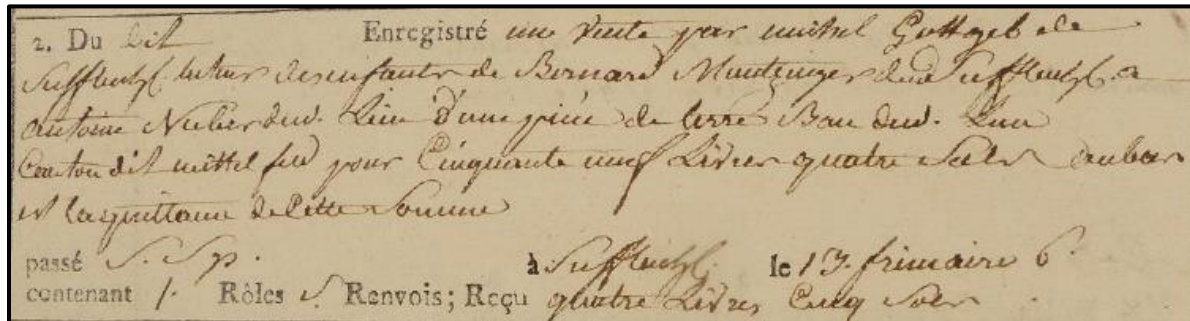 2. Du dit Enregistré une Vente par mithel Gottgeb de
Sufflenh. tuteur des enfants de Bernard Muntzinger dud. Sufflenh. a
antoine Nuber dud. Lieu d'une piéce de terre Ban dud. Lieu
Canton dit mittel feld pour Cinquante neuf Livres quatre Sols au bas
est la quittance de Cette Somme
passé S. Sp. à Sufflenh. le 13. frimaire 6.
contenant 1. Rôles s. Renvois; Reçu quatre Livres Cinq Sols